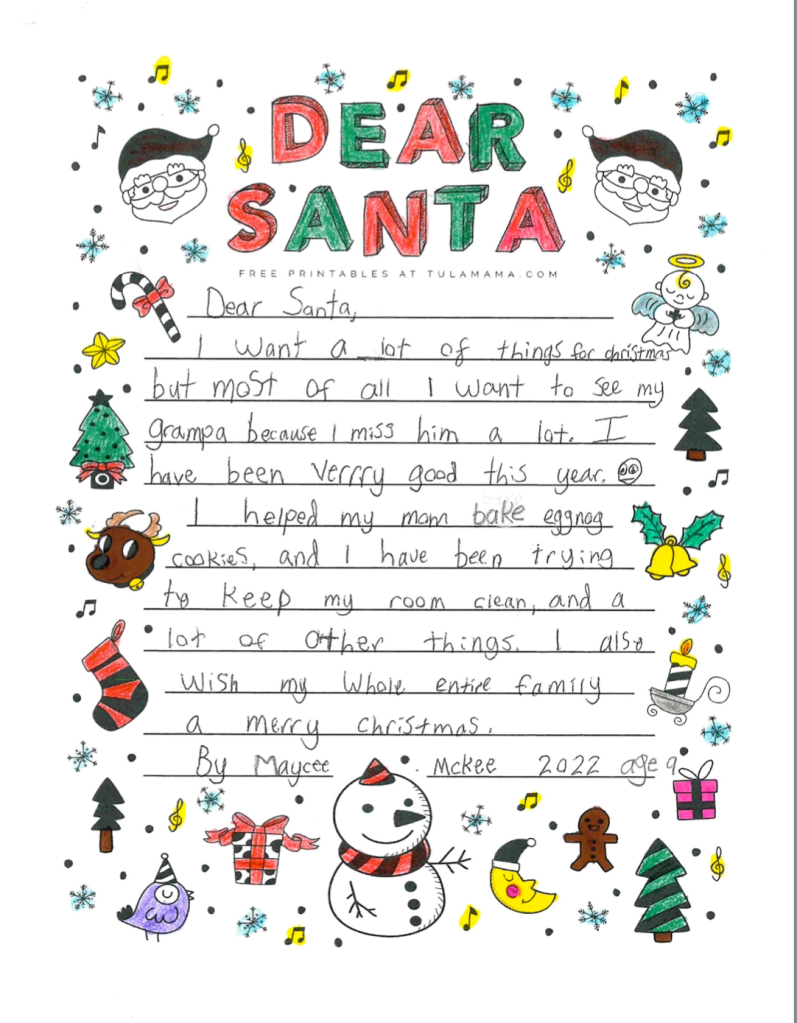 DEAR
SANTA
FREE PRINTABLES AT TULAMAMA.COM
Dear Santa,
I want a lot of things for christmas
but most of all I want to see my
grampa because I miss him a lot. I
have been Verrry good this year.
I helped my mom bake eggnog
cookies, and I have been trying
to keep my room clean, and a
lot of other things. I also
wish my whole entire family
a merry christmas.
By Maycee McKee 2022 age 9